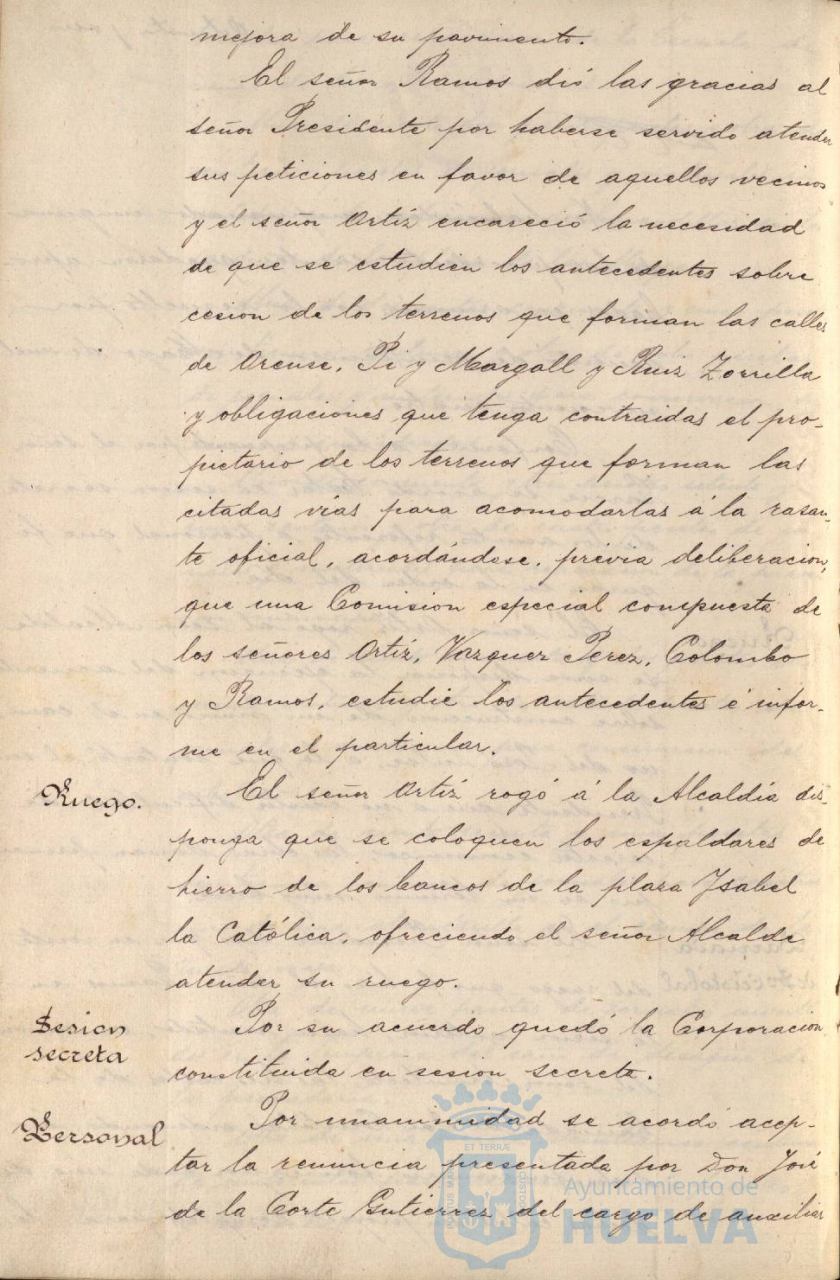 mejora de su pavimento.
El señor Ramos dió las gracias al
señor Presidente por haberse servido atender
sus peticiones en favor de aquellos vecinos
y el señor Ortiz encareció la necesidad
de que se estudien los antecedentes sobre
cesion de los terrenos que forman las calles
de Orense, Pi y Margall y Ruiz Zorrilla
y obligaciones que tenga contraidas el pro-
pietario de los terrenos que forman las
citadas vías para acomodarlas á la rasan-
te oficial, acordándose, prévia deliberacion,
que una Comision especial compuesta de
los señores Ortiz, Vazquez Perez, Colombo
y Ramos, estudie los antecedentes é infor-
me en el particular.
Ruego.
El señor Ortiz rogó á la Alcaldía dis-
ponga que se coloquen los espaldares de
hierro de los bancos de la plaza Ysabel
la Católica, ofreciendo el señor Alcalde
atender su ruego.
Sesion
secreta
Por su acuerdo quedó la Corporacion
constituida en sesion secreta.
Personal
Por unanimidad se acordó acep-
tar la renuncia presentada por Don José
de la Corte Gutierrez del cargo de auxiliar
ET TERRÆ
Ayuntamiento de
HUELVA